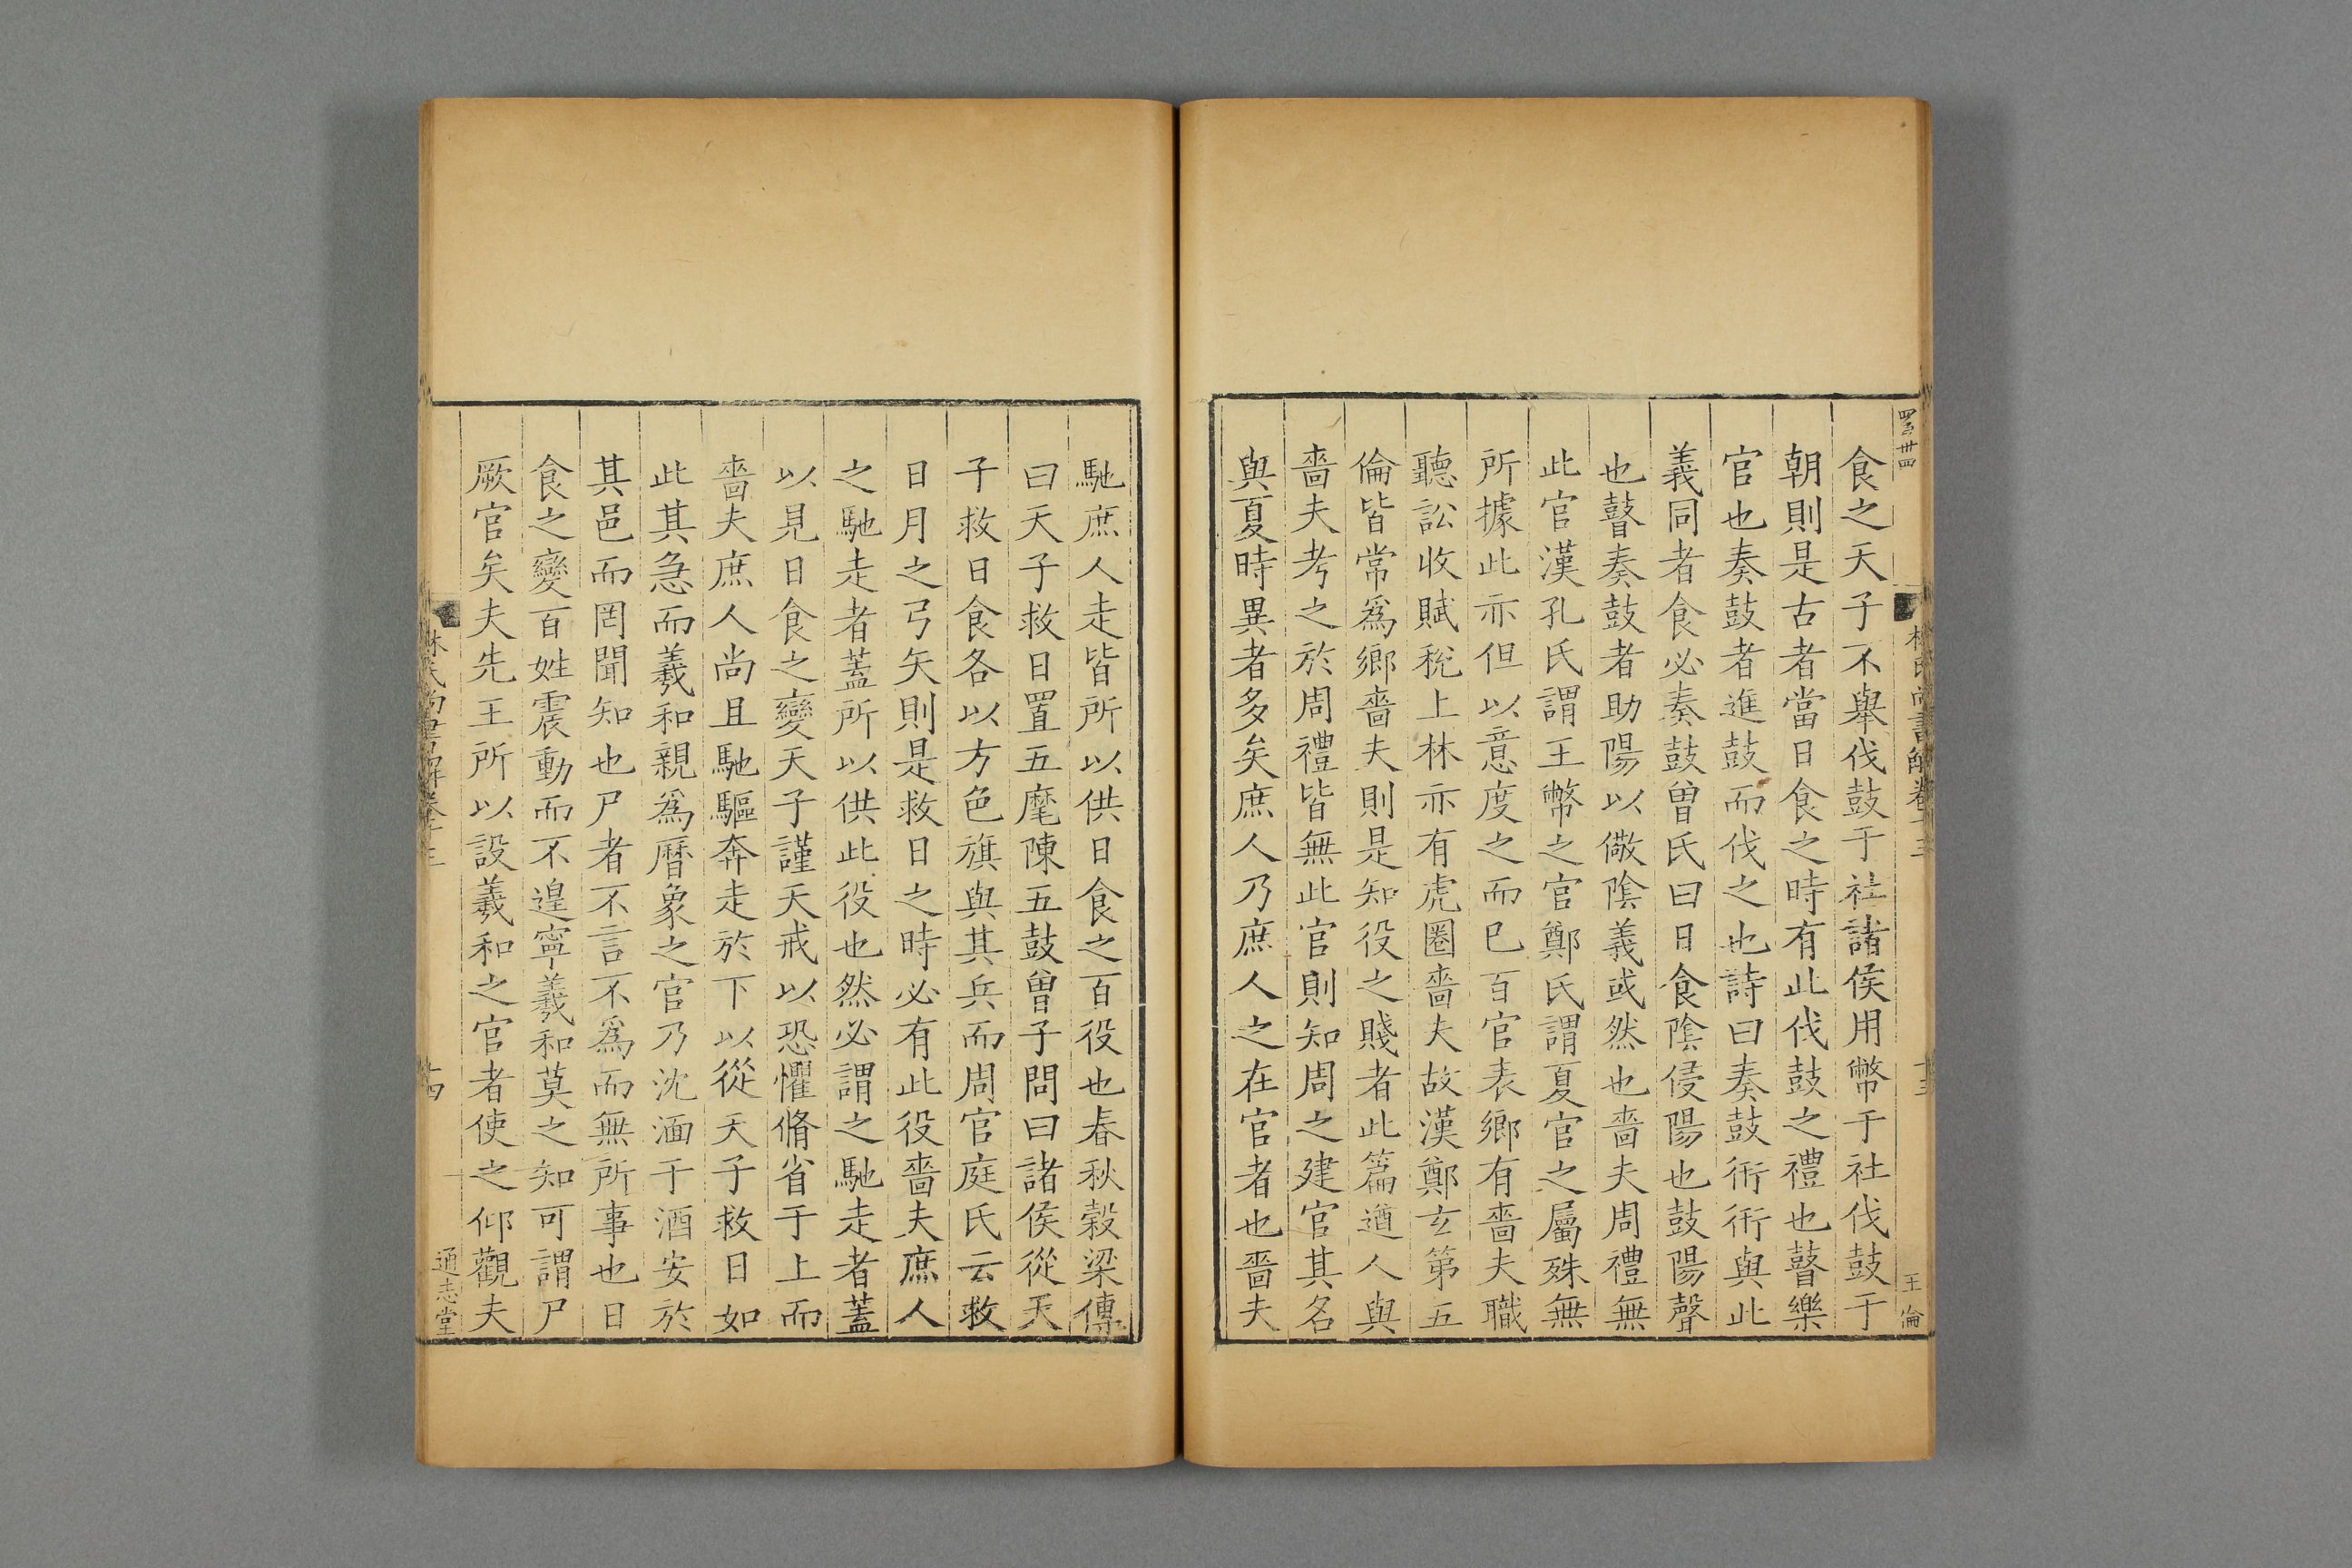 食之天子不舉伐鼓于社諸侯用幣于社伐鼓于
朝則是古者當日食之時有此伐鼓之禮也瞽樂
官也奏鼓者進鼓而伐之也詩曰奏鼓衎衎與此
義同者食必奏鼓曾氏曰日食陰侵陽也鼓陽聲
也瞽奏鼓者助陽以儆陰義或然也嗇夫周禮無
此官漢孔氏謂王幣之官鄭氏謂夏官之屬殊無
所據此亦但以意度之而已百官表鄉有嗇夫職
聽訟收賦稅上林亦有虎圈嗇夫故漢鄭玄第五
倫皆常爲鄉嗇夫則是知役之賤者此篇遒人與
嗇夫考之於周禮皆無此官則知周之建官其名
與夏時異者多矣庶人乃庶人之在官者也嗇夫
林氏尚書解卷十三
十三
王倫
馳庶人走皆所以供日食之百役也春秋穀梁傳
曰天子救日置五麾陳五鼓曾子問曰諸侯從天
子救日食各以方色旗與其兵而周官庭氏云救
日月之弓矢則是救日之時必有此役嗇夫庶人
之馳走者蓋所以供此役也然必謂之馳走者蓋
以見日食之變天子謹天戒以恐懼脩省于上而
嗇夫庶人尚且馳驅奔走於下以從天子救日如
此其急而羲和親爲曆象之官乃沈湎于酒安於
其邑而罔聞知也尸者不言不爲而無所事也日
食之變百姓震動而不遑寧羲和莫之知可謂尸
厥官矣夫先王所以設羲和之官者使之仰觀夫
林氏尚書解卷十三
十四
通志堂